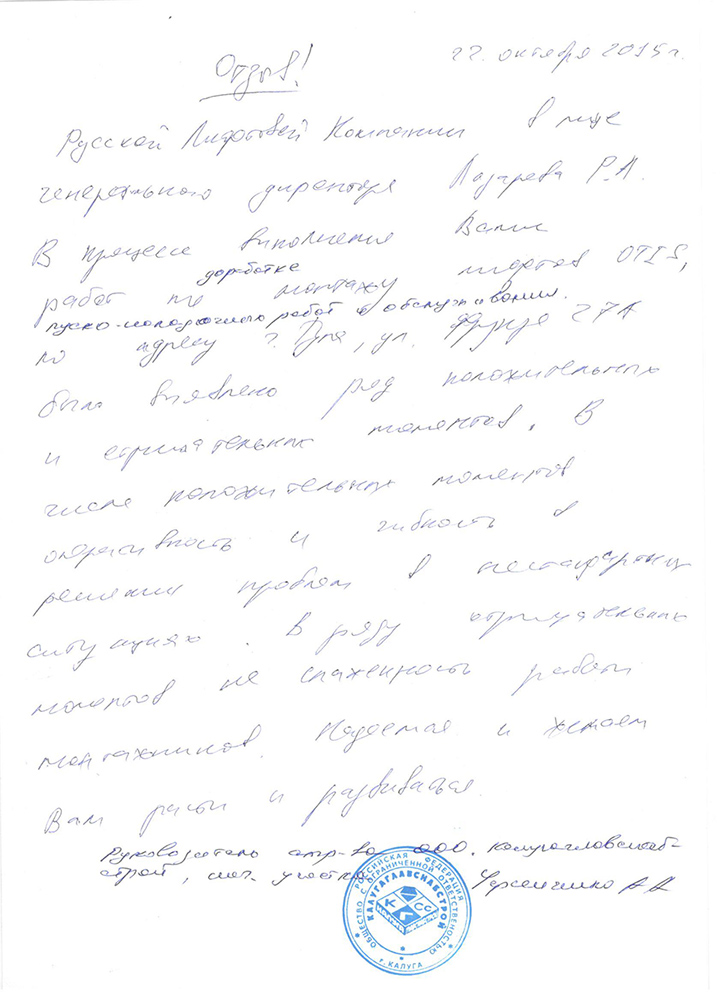 22. октября 2015г.
Отзыв!
Русской Лифтовой Компании в лице
генерального директора Лазарева Р.А.
В процессе выполнения Вами
доработке
работ по монтажу лифтов OTIS,
пуско-наладочного работ и обслуживания.
по адресу г. Тула, ул. Фрунзе 27А
было выявлено ряд положительных
и отрицательных моментов. В
числе положительных моментов
оперативность и гибкость в
решении проблем в нестандартных
ситуациях. В ряду отрицательных
моментов не слаженность работы
монтажников. Надеемся и желаем
Вам расти и развиваться
Руководитель стр-ва ООО. Калугаглавснаб-
строй, нач. участка
ОБЩЕСТВО С ОГРАНИЧЕННОЙ ОТВЕТСТВЕННОСТЬЮ
РОССИЙСКАЯ ФЕДЕРАЦИЯ
КАЛУГАГЛАВСНАБСТРОЙ
К Г СС
г. КАЛУГА